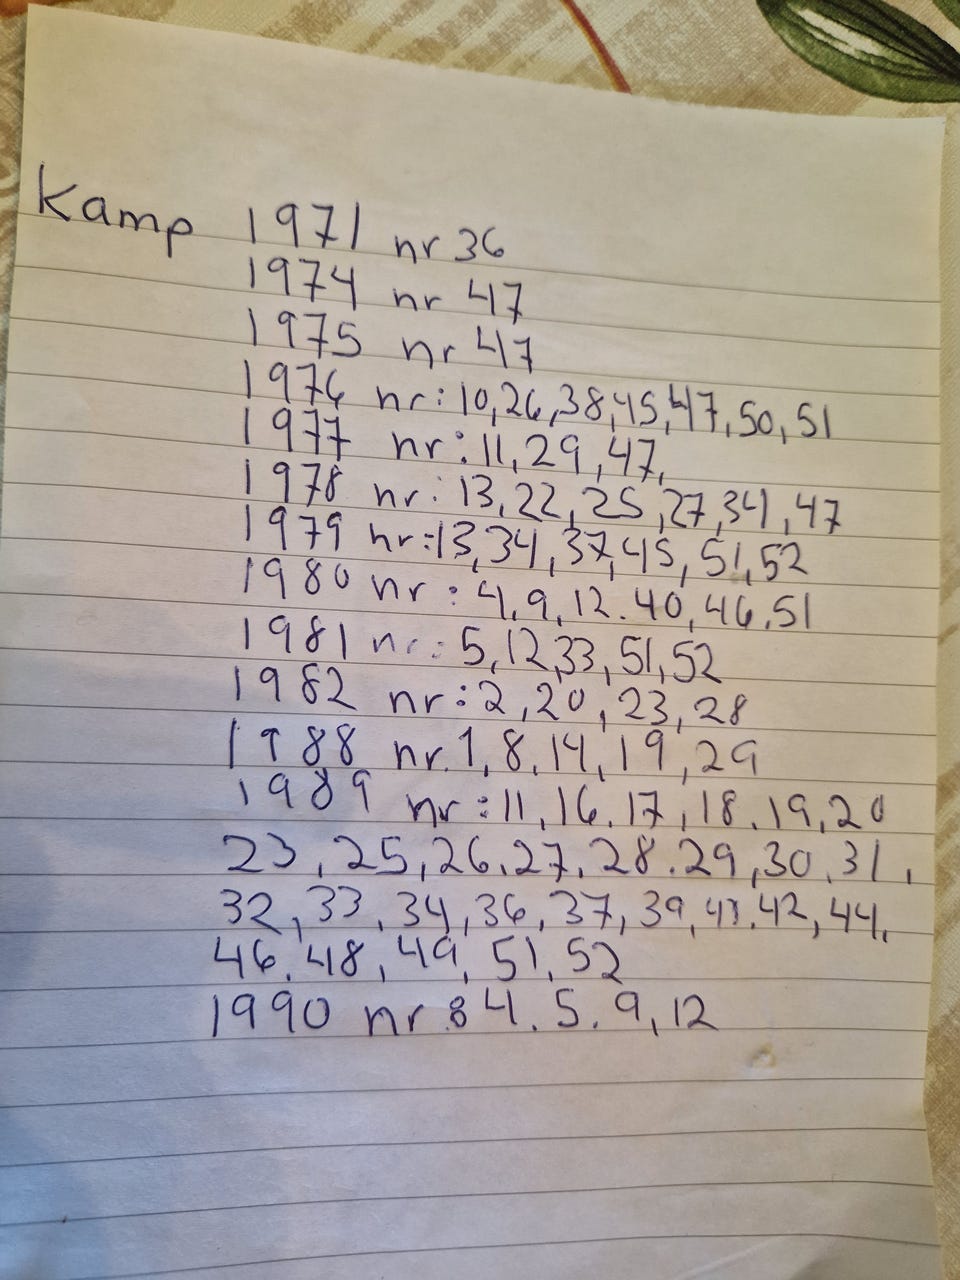 Kamp 1971 nr 36
1974 nr 47
1975 nr 47
1976 nr: 10,26,38,45,47,50,51
1977 nr: 11,29,47,
1978 nr: 13,22,25,27,34,47
1979 nr:13,34,37,45,51,52
1980 nr: 4,9,12.40,46.51
1981 nr: 5,12,33,51,52
1982 nr:2,20,23,28
1988 nr.1,8.14,19,29
1989 nr:11,16.17,18.19,20
23,25,26.27.28.29,30.31,
32,33.34,36,37,39,43.42,44.
46.48,49,51,52
1990 nr 4.5.9,12